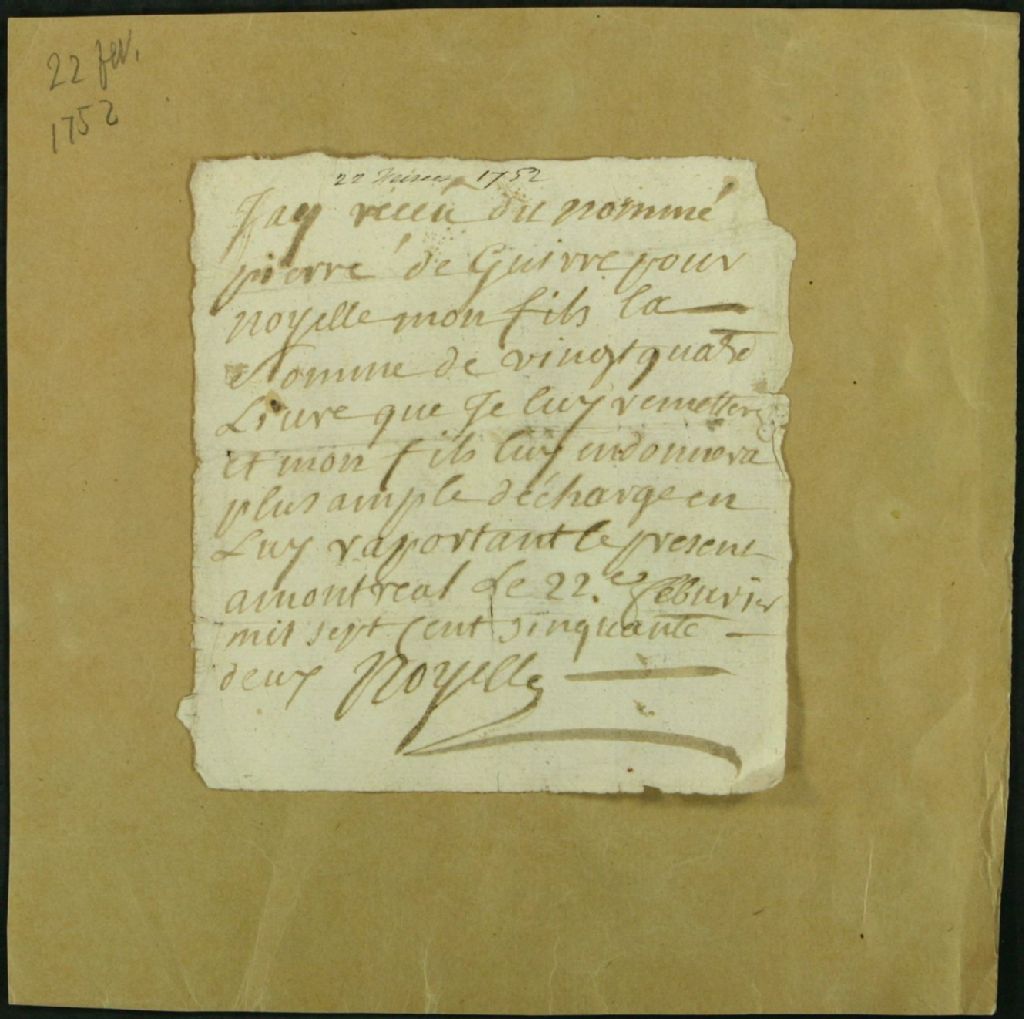 22 fev.
1752
22 fevrier 1752
J'ay receu du nommé
pierre de Guirre pour
noyelle mon fils la
Somme de vingt quatre
Livre que Je luy remettere
et mon fils luy endonnera
plus ample décharge en
Luy raportant le present
a montreal Le 22.e febuvrier
mil sept Cent sinquante
deux Noyelle